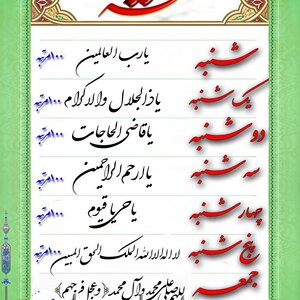 شنبه یارب العالمین ۱۰۰مرتبه
یک شنبه یاذالجلال والاکرام ۱۰۰مرتبه
دوشنبه یاقاضی الحاجات ۱۰۰مرتبه
سه شنبه یاارحم الراحمین ۱۰۰مرتبه
چهارشنبه یاحی یاقیوم ۱۰۰مرتبه
پنج شنبه لااله الاالله الملک الحق المبین ۱۰۰مرتبه
جمعه اللهم صل علی محمد وآل محمد (وعجل فرجهم) ۱۰۰مرتبه